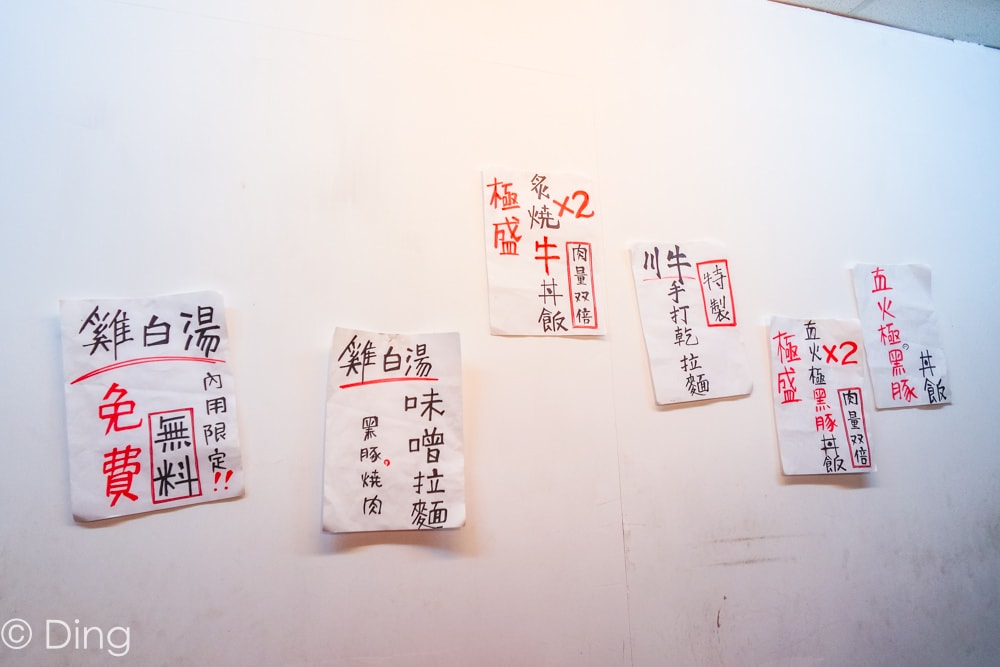 雞白湯
免費
無料
內用限定!!
雞白湯
味噌拉麵
黑豚燒肉
極盛
炙燒牛丼飯
x2
肉量双倍
川牛
手打乾拉麵
特製
極盛
直火極黑豚丼飯
x2
肉量双倍
直火極黑豚
丼飯
© Ding